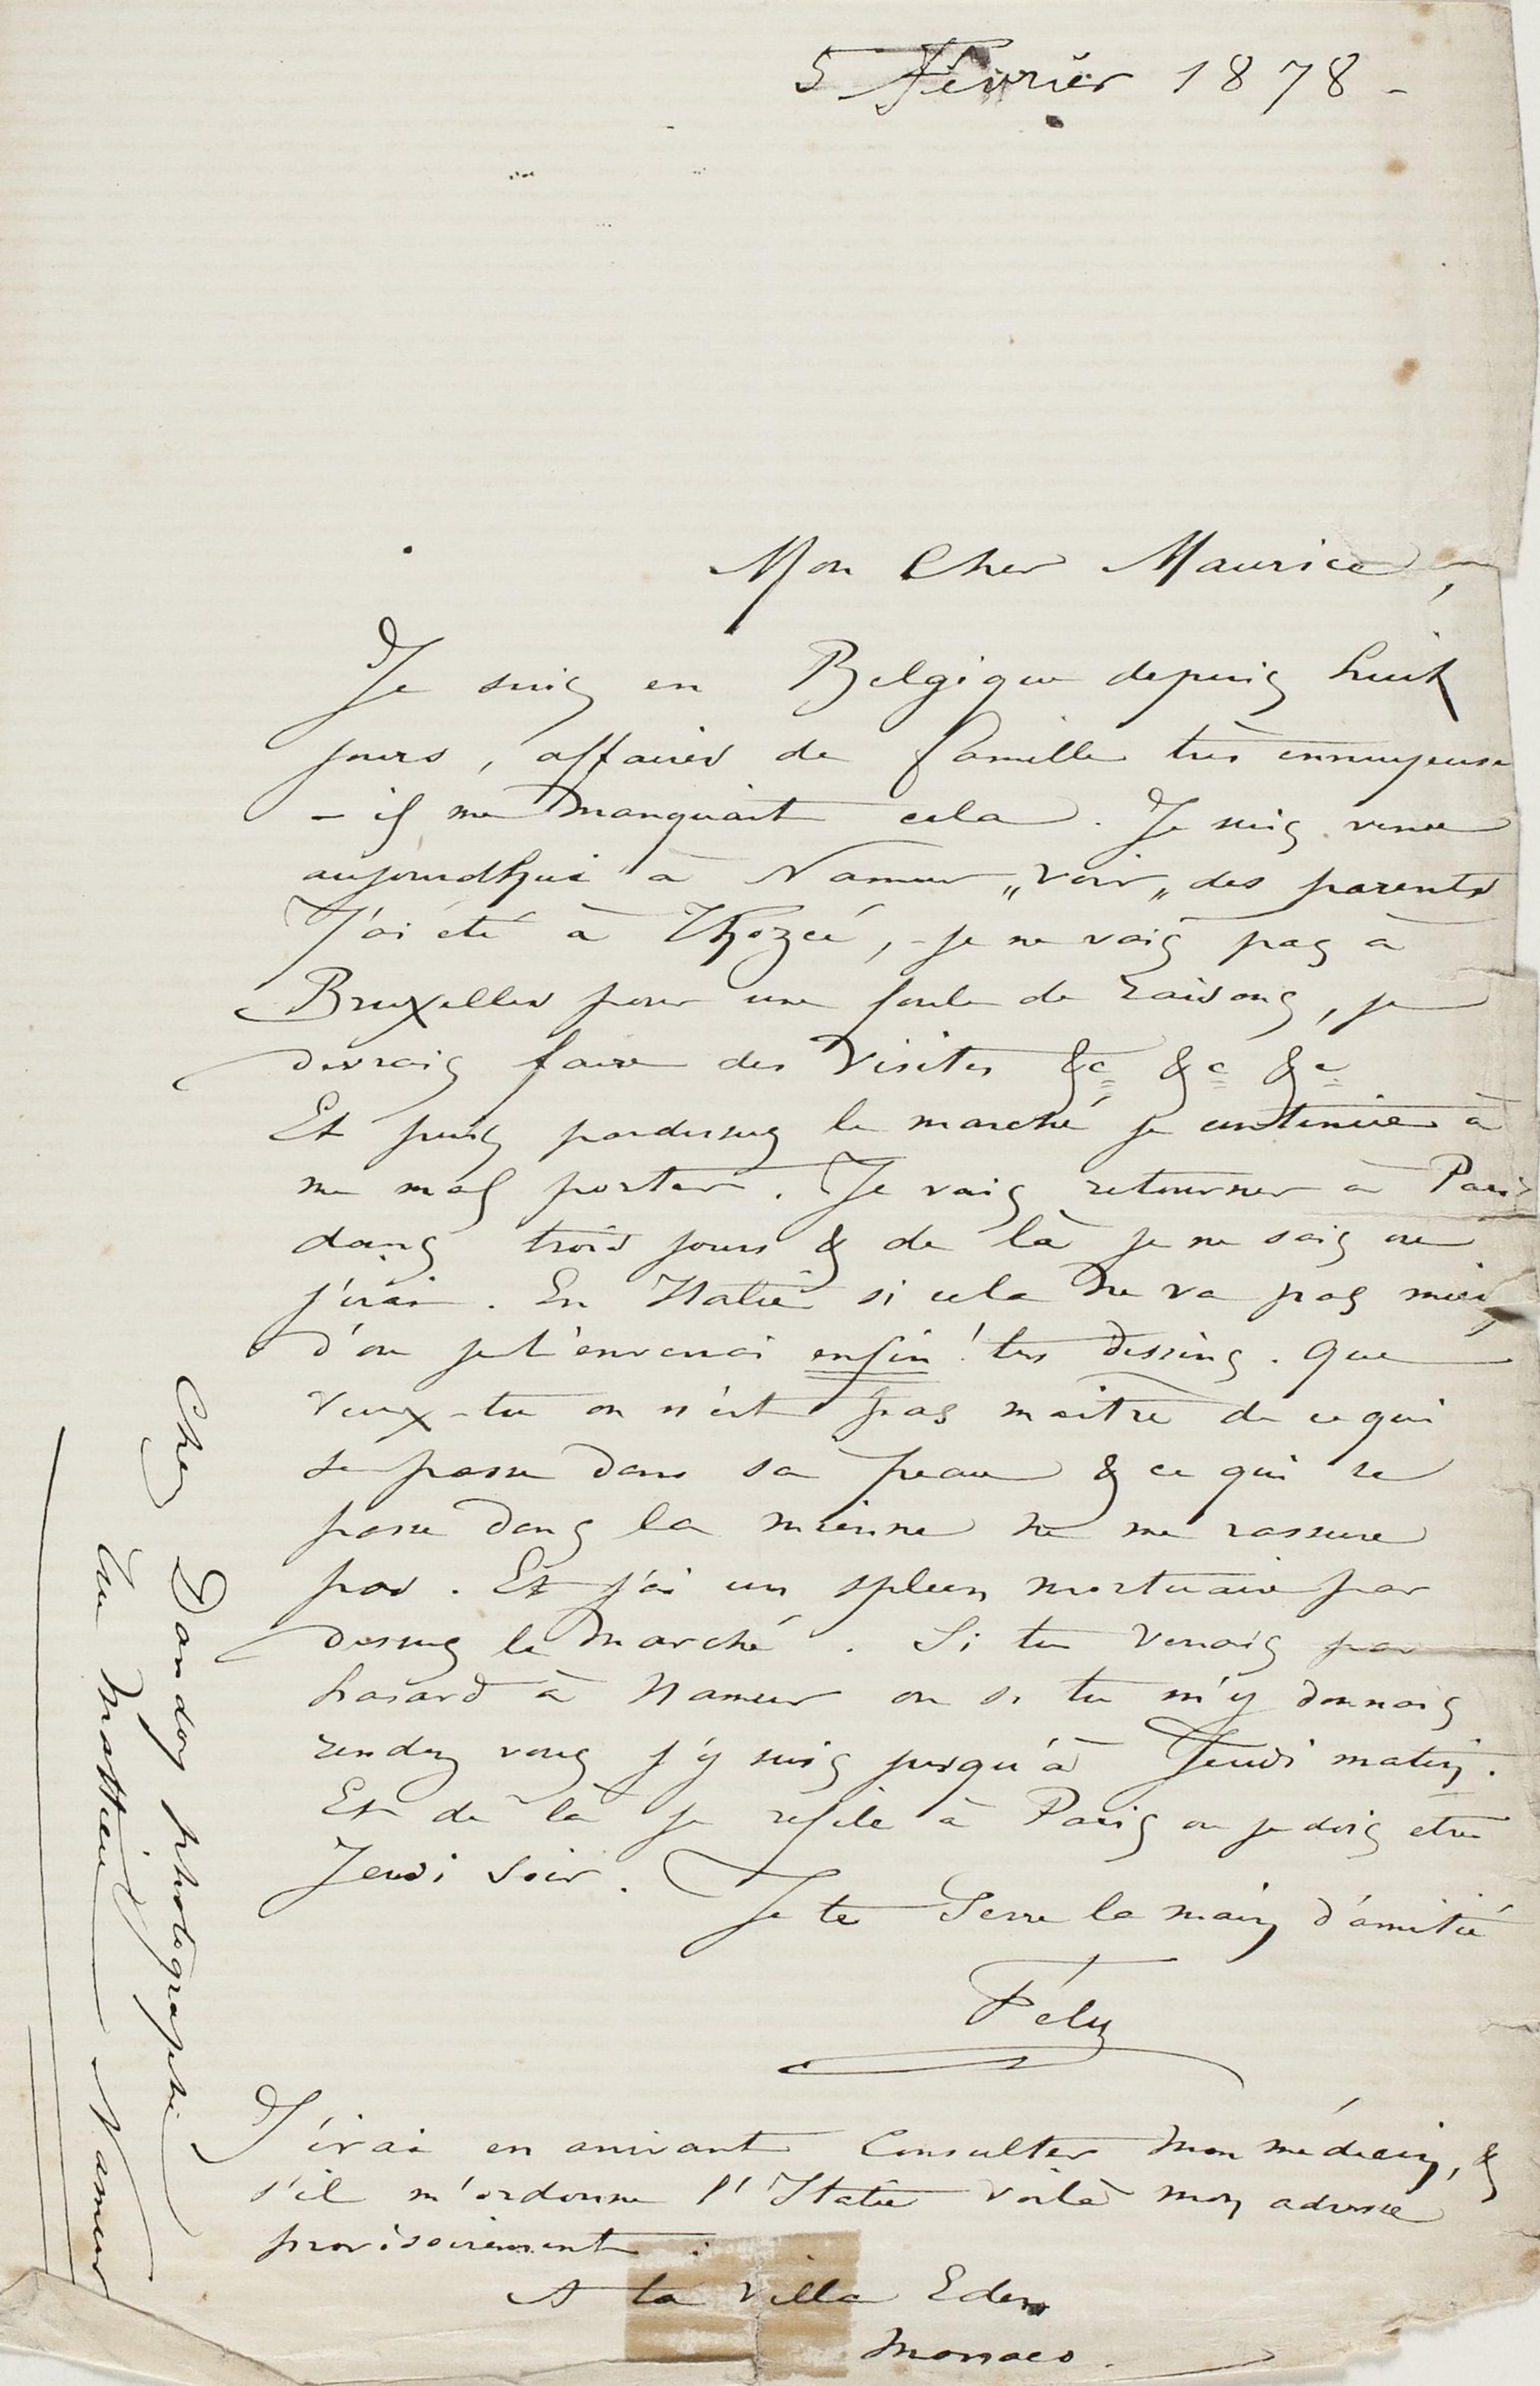 5 Février 1878 -
Mon Cher Maurice,
Je suis en Belgique depuis huit
jours, affaires de famille très ennuyeuse
- il me manquait cela. Je suis venu
aujourdhui à Namur „voir„ des parents
J'ai été à Thozée, - je ne vais pas à
Bruxelles pour une foule de raisons, je
devrais faire des visites &c &c &c
Et puis pardessus le marché je continue à
me mal porter. Je vais retourner à Paris
dans trois jours & de là je ne sais ou
j'irai. En Italie si cela ne va pas mieux
d'ou je t'enverrai enfin! tes dessins. Que
veux-tu on n'est pas maitre de ce qui
se passe dans sa peau & ce qui se
passe dans la mienne ne me rassure
pas. Et j'ai un spleen mortuaire par
dessus le marché. Si tu venais par
hasard à Namur ou si tu m'y donnais
rendez vous j'y suis jusqu'à Jeudi matin.
Et de là je refile à Paris ou je dois etre
Jeudi soir.
Je te serre la main d'amitié
Fély
J'irai en arrivant consulter mon médecin, &
s'il m'ordonne l'Italie voilà mon adresse
provisoirement :
A la Villa Eden
Monaco.
Chez Dandoy photographe
Namur